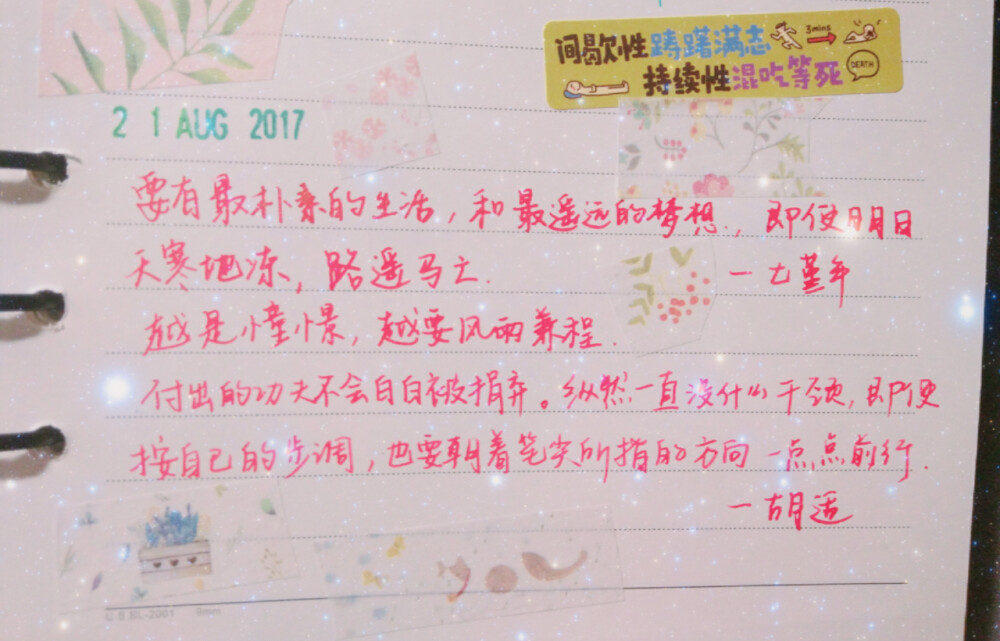 间歇性踌躇满志
3mins
持续性混吃等死
DEATH
21 AUG 2017
要有最朴素的生活，和最遥远的梦想.，即使明日
天寒地冻，路遥马亡.
—七堇年
越是憧憬，越要风雨兼程.
付出的功夫不会白白被捐弃。纵然一直没什么干领，即便
按自己的步调，也要朝着笔尖所指的方向一点点前行.
—胡适
U.S.BL-2001 9mm